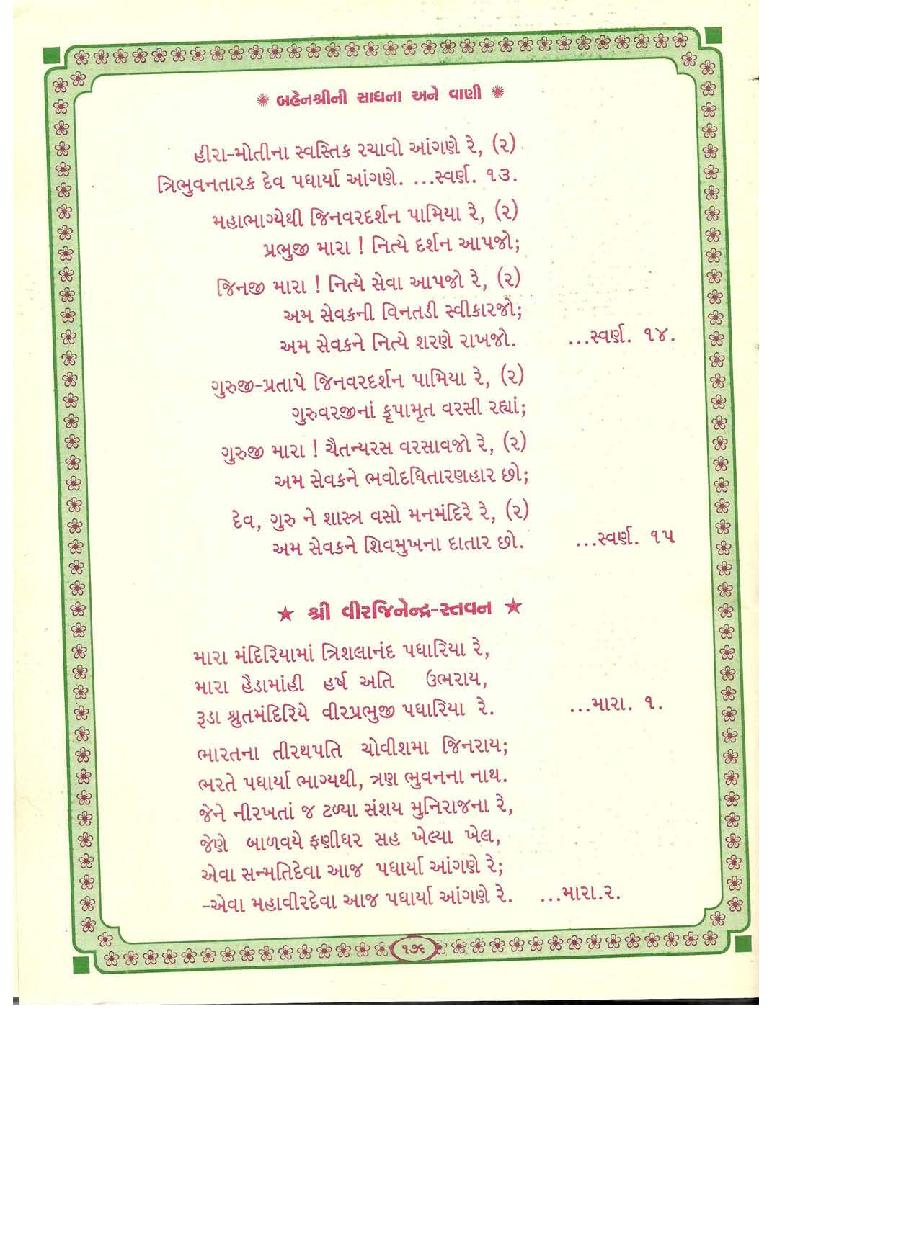 ❋ બહેનશ્રીની સાધના અને વાણી ❋
હીરા-મોતીના સ્વસ્તિક રચાવો આંગણે રે, (૨)
ત્રિભુવનતારક દેવ પધાર્યા આંગણે. ...સ્વર્ણ. ૧૩.
મહાભાગ્યેથી જિનવરદર્શન પામિયા રે, (૨)
પ્રભુજી મારા ! નિત્યે દર્શન આપજો;
જિનજી મારા ! નિત્યે સેવા આપજો રે, (૨)
અમ સેવકની વિનતડી સ્વીકારજો;
અમ સેવકને નિત્યે શરણે રાખજો. ...સ્વર્ણ. ૧૪.
ગુરુજી-પ્રતાપે જિનવરદર્શન પામિયા રે, (૨)
ગુરુવરજીનાં કૃપામૃત વરસી રહ્યાં;
ગુરુજી મારા ! ચૈતન્યરસ વરસાવજો રે, (૨)
અમ સેવકને ભવોદધિતારણહાર છો;
દેવ, ગુરુ ને શાસ્ત્ર વસો મનમંદિરે રે, (૨)
અમ સેવકને શિવમુખના દાતાર છો. ...સ્વર્ણ. ૧૫
★ શ્રી વીરજિનેન્દ્ર-સ્તવન ★
મારા મંદિરિયામાં ત્રિશલાનંદ પધારિયા રે,
મારા હૈડામાંહી હર્ષ અતિ ઉભરાય,
રૂડા શ્રુતમંદિરિયે વીરપ્રભુજી પધારિયા રે. ...મારા. ૧.
ભારતના તીરથપતિ ચોવીશમા જિનરાય;
ભરતે પધાર્યા ભાગ્યથી, ત્રણ ભુવનના નાથ.
જેને નીરખતાં જ ટળ્યા સંશય મુનિરાજના રે,
જેણે બાળવયે ફણીધર સહ ખેલ્યા ખેલ,
એવા સન્મતિદેવા આજ પધાર્યા આંગણે રે;
-એવા મહાવીરદેવા આજ પધાર્યા આંગણે રે. ...મારા.૨.
૧૭૬